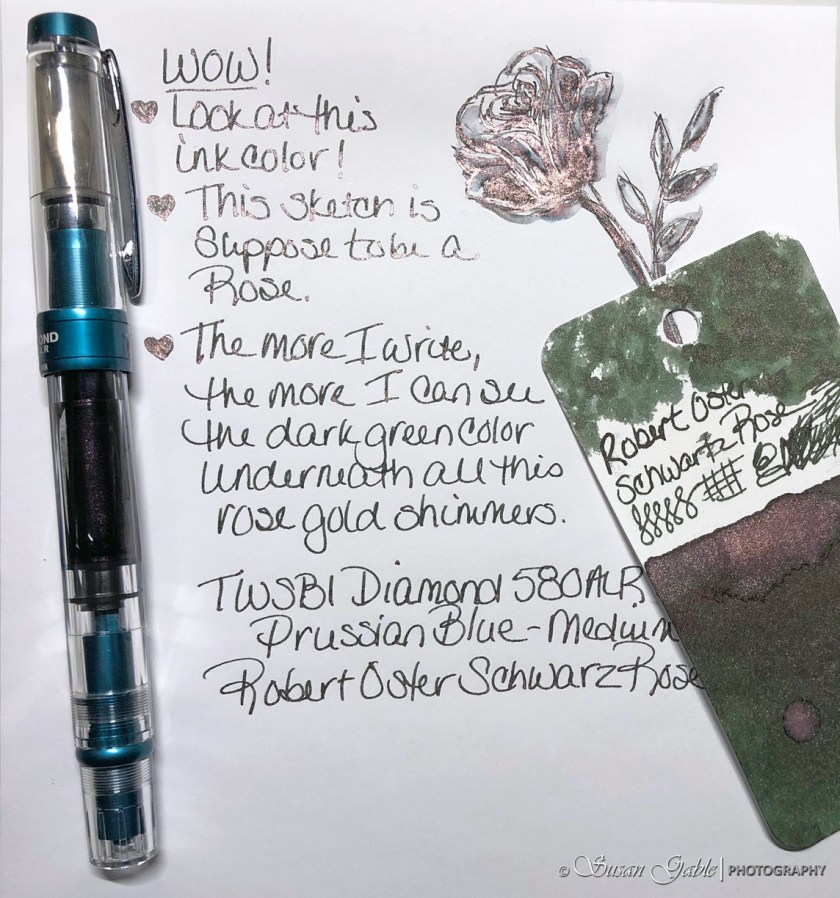 WOW!
Look at this
ink color!
This sketch is
Suppose to be a
Rose.
The more I write,
the more I can see
the dark green color
Underneath all this
rose gold shimmers.
TWSBI Diamond 580ALR
Prussian Blue - Medium
Robert Oster Schwarz Rose
OND
LR
Robert Oster
Schwartz Rose
© Susan Gable | PHOTOGRAPHY